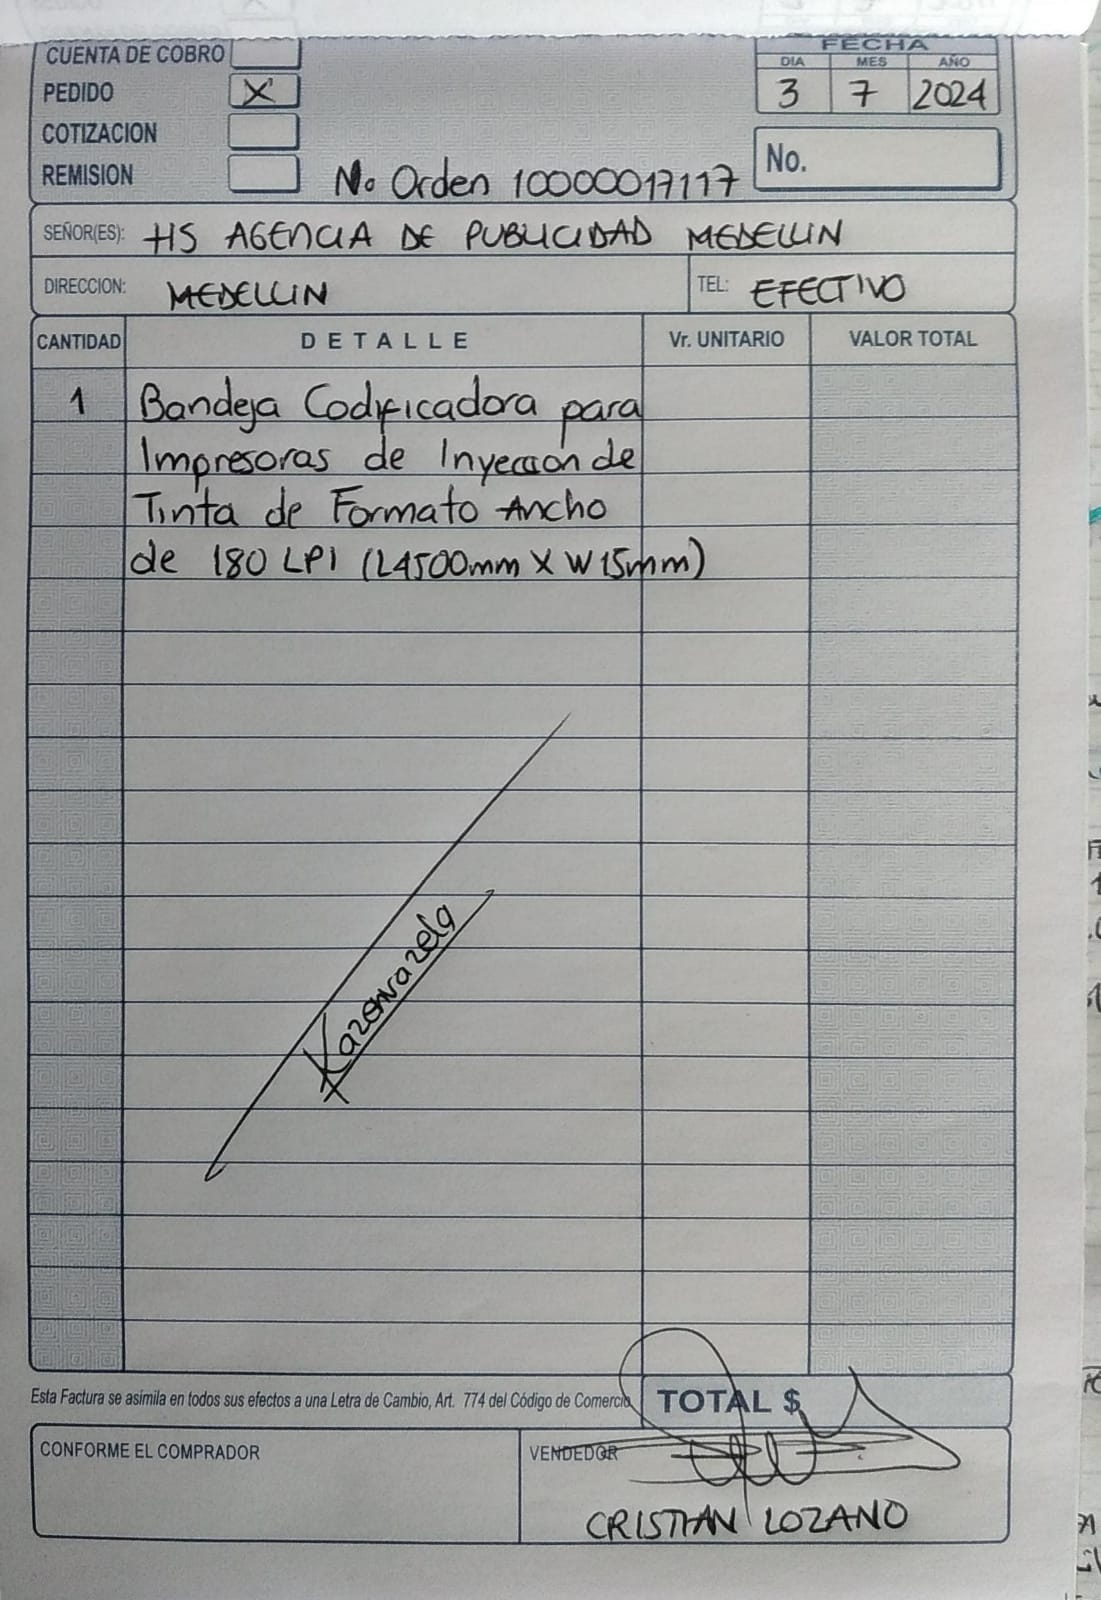 CUENTA DE COBRO
PEDIDO X
COTIZACION
REMISION
FECHA
DIA MES AÑO
3 7 2024
No.
No Orden 10000017117
SEÑOR(ES): HS AGENCIA DE PUBLICIDAD MEDELLIN
DIRECCION: MEDELLIN TEL: EFECTIVO
CANTIDAD DETALLE Vr. UNITARIO VALOR TOTAL
1 Bandeja Codificadora para
Impresoras de Inyeccion de
Tinta de Formato Ancho
de 180 LPI (L4500mm X W15mm)
Esta Factura se asimila en todos sus efectos a una Letra de Cambio, Art. 774 del Código de Comercio
TOTAL $
CONFORME EL COMPRADOR
VENDEDOR
CRISTIAN LOZANO